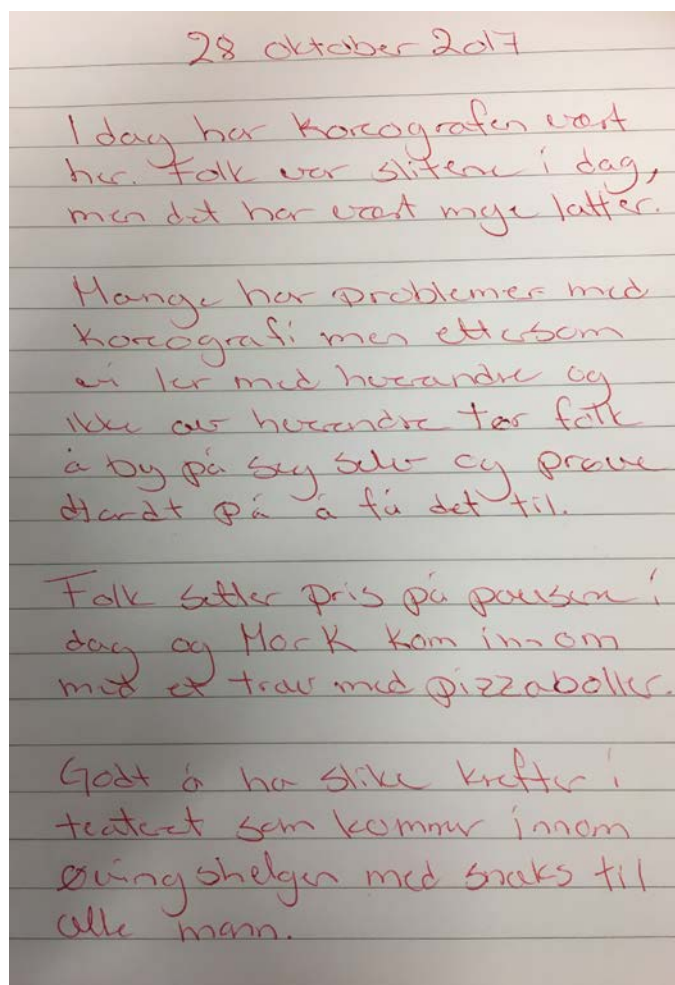 28 oktober 2017
I dag har Koreografen vært
her. Folk var slitene i dag,
men det har vært mye latter.
Mange har problemer med
Koreografi men ettersom
vi ler med hverandre og
ikke av hverandre tør folk
å by på seg selv og prøve
hardt på å få det til.
Folk setter pris på pausen i
dag og Mor K kom innom
med et trau med pizzaboller.
Godt å ha slike krefter i
teateret som kommer innom
øvingshelgen med snaks til
alle mann.